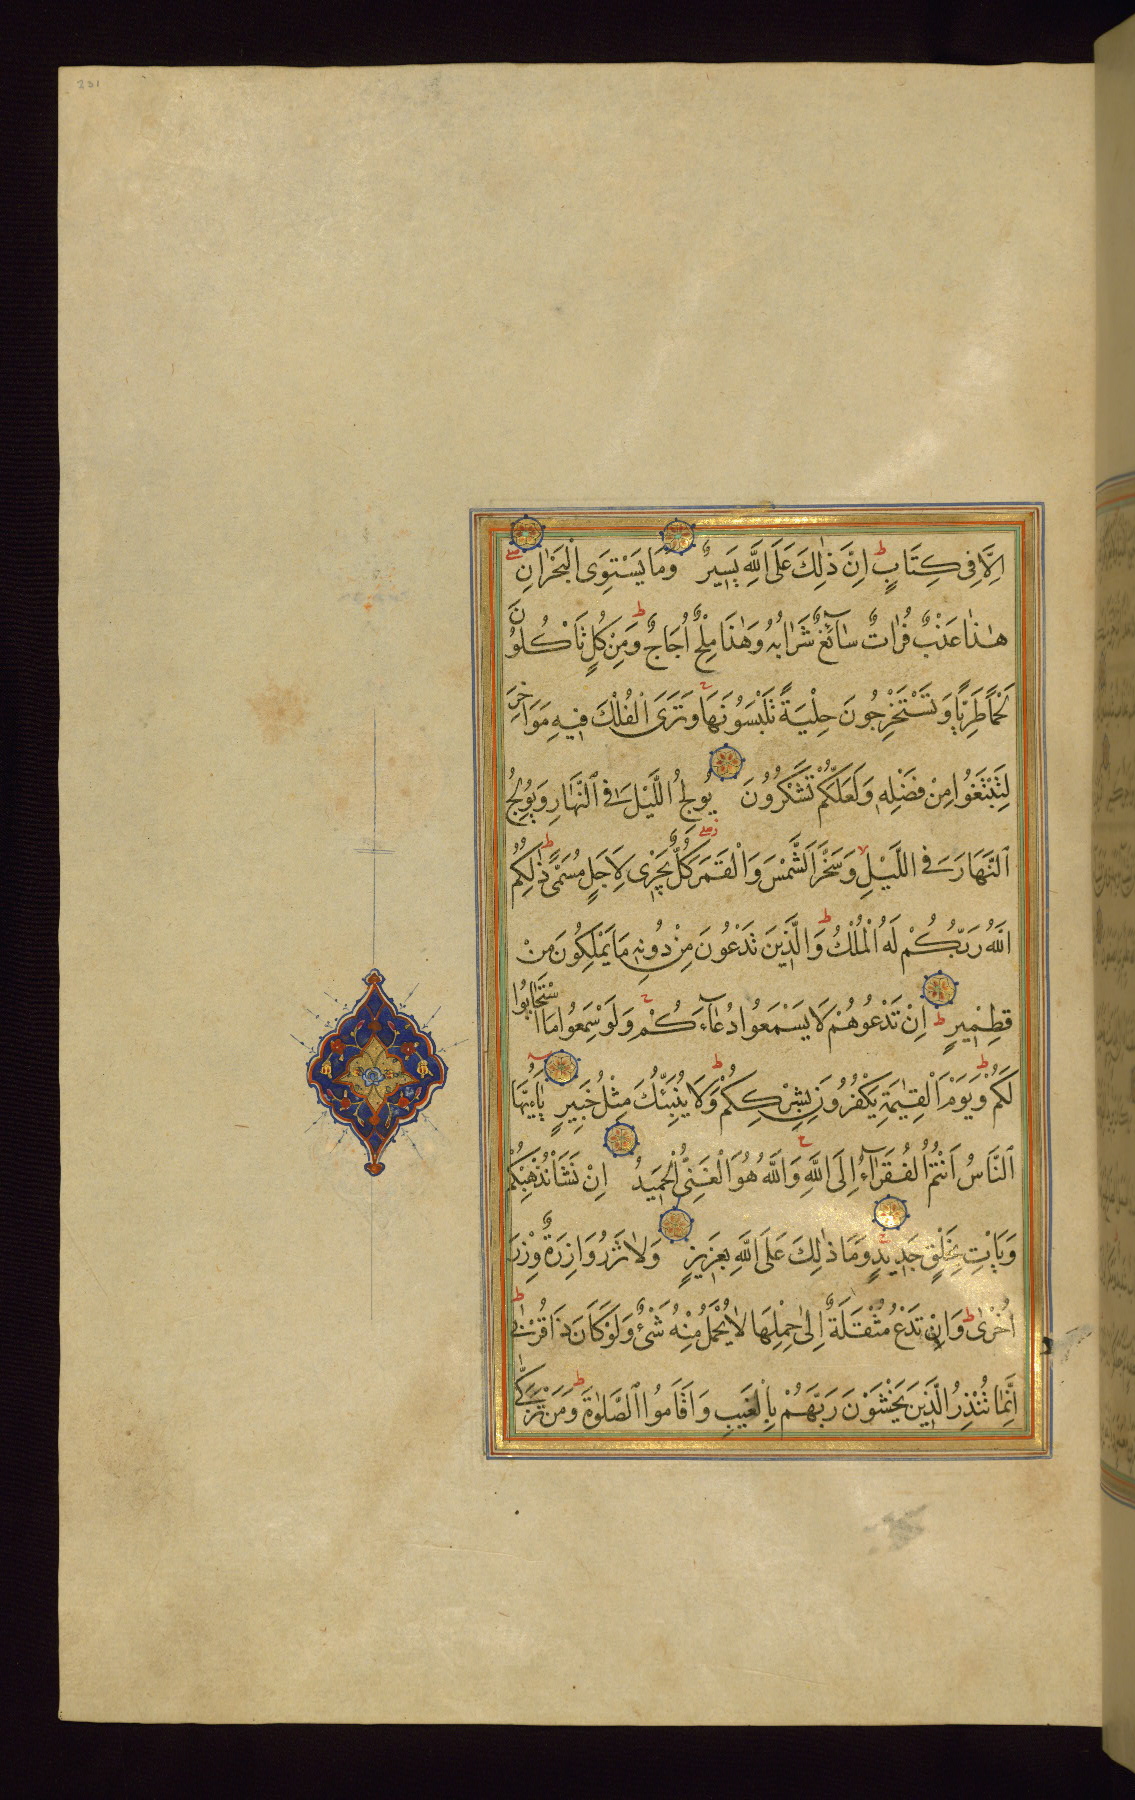 231
اِلَّا فِى كِتَابٍ ط اِنَّ ذٰلِكَ عَلَى اللّٰهِ يَسِيرٌ وَمَا يَسْتَوِى الْبَحْرَانِ صلے
هٰذَا عَذْبٌ فُرَاتٌ سَآئِغٌ شَرَابُهُ وَهٰذَا مِلْحٌ اُجَاجٌ ط وَمِنْ كُلٍّ تَأْكُلُونَ
لَحْمًا طَرِيًّا وَتَسْتَخْرِجُونَ حِلْيَةً تَلْبَسُونَهَا ج وَتَرَى الْفُلْكَ فِيهِ مَوَاخِرَ
لِتَبْتَغُوا مِنْ فَضْلِهِ وَلَعَلَّكُمْ تَشْكُرُونَ يُولِجُ اللَّيْلَ فِى النَّهَارِ وَيُولِجُ
النَّهَارَ فِى اللَّيْلِ لا وَسَخَّرَ الشَّمْسَ وَالْقَمَرَ زصلے كُلٌّ يَجْرِى لِاَجَلٍ مُسَمًّى ط ذٰلِكُمُ
اللّٰهُ رَبُّكُمْ لَهُ الْمُلْكُ ط وَالَّذِينَ تَدْعُونَ مِنْ دُونِهِ مَا يَمْلِكُونَ مِنْ
قِطْمِيرٍ ط اِنْ تَدْعُوهُمْ لَا يَسْمَعُوا دُعَآءَكُمْ ج وَلَوْ سَمِعُوا مَا اسْتَجَابُوا
لَكُمْ ط وَيَوْمَ الْقِيٰمَةِ يَكْفُرُونَ بِشِرْكِكُمْ ط وَلَا يُنَبِّئُكَ مِثْلُ خَبِيرٍ يَآءَيُّهَا
النَّاسُ اَنْتُمُ الْفُقَرَآءُ اِلَى اللّٰهِ ج وَاللّٰهُ هُوَ الْغَنِىُّ الْحَمِيدُ اِنْ يَشَأْ يُذْهِبْكُمْ
وَيَأْتِ بِخَلْقٍ جَدِيدٍ ج وَمَا ذٰلِكَ عَلَى اللّٰهِ بِعَزِيزٍ وَلَا تَزِرُ وَازِرَةٌ وِزْرَ
اُخْرٰى ط وَاِنْ تَدْعُ مُثْقَلَةٌ اِلٰى حِمْلِهَا لَا يُحْمَلْ مِنْهُ شَىْءٌ وَلَوْ كَانَ ذَا قُرْبٰى ط
اِنَّمَا تُنْذِرُ الَّذِينَ يَخْشَوْنَ رَبَّهُمْ بِالْغَيْبِ وَاَقَامُوا الصَّلٰوةَ ط وَمَنْ تَزَكّٰى